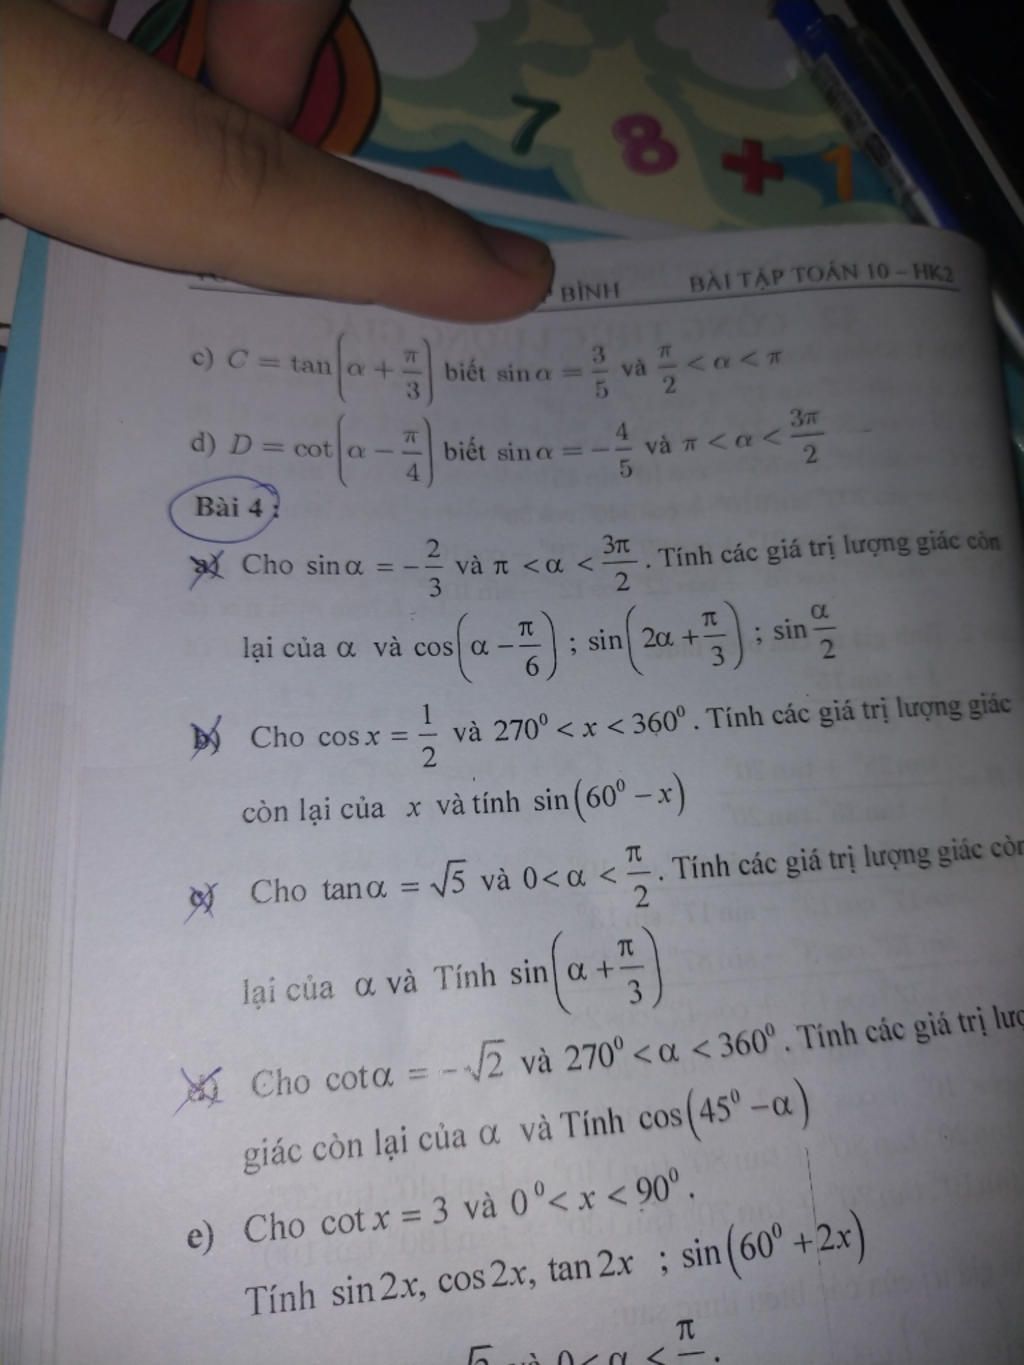 7 8 + 1
BÌNH BÀI TẬP TOÁN 10 – HK2
c) C = tan(α + π/3) biết sin α = 3/5 và π/2 < α < π
d) D = cot(α − π/4) biết sin α = −4/5 và π < α < 3π/2
Bài 4 :
a) Cho sin α = −2/3 và π < α < 3π/2 . Tính các giá trị lượng giác còn
lại của α và cos(α − π/6) ; sin(2α + π/3) ; sin α/2
b) Cho cos x = 1/2 và 270⁰ < x < 360⁰ . Tính các giá trị lượng giác
còn lại của x và tính sin(60⁰ − x)
c) Cho tan α = √5 và 0 < α < π/2 . Tính các giá trị lượng giác còn
lại của α và Tính sin(α + π/3)
d) Cho cot α = −√2 và 270⁰ < α < 360⁰ . Tính các giá trị lượ
giác còn lại của α và Tính cos(45⁰ − α)
e) Cho cot x = 3 và 0⁰ < x < 90⁰ .
Tính sin 2x, cos 2x, tan 2x ; sin(60⁰ + 2x)
và 0 < α < π